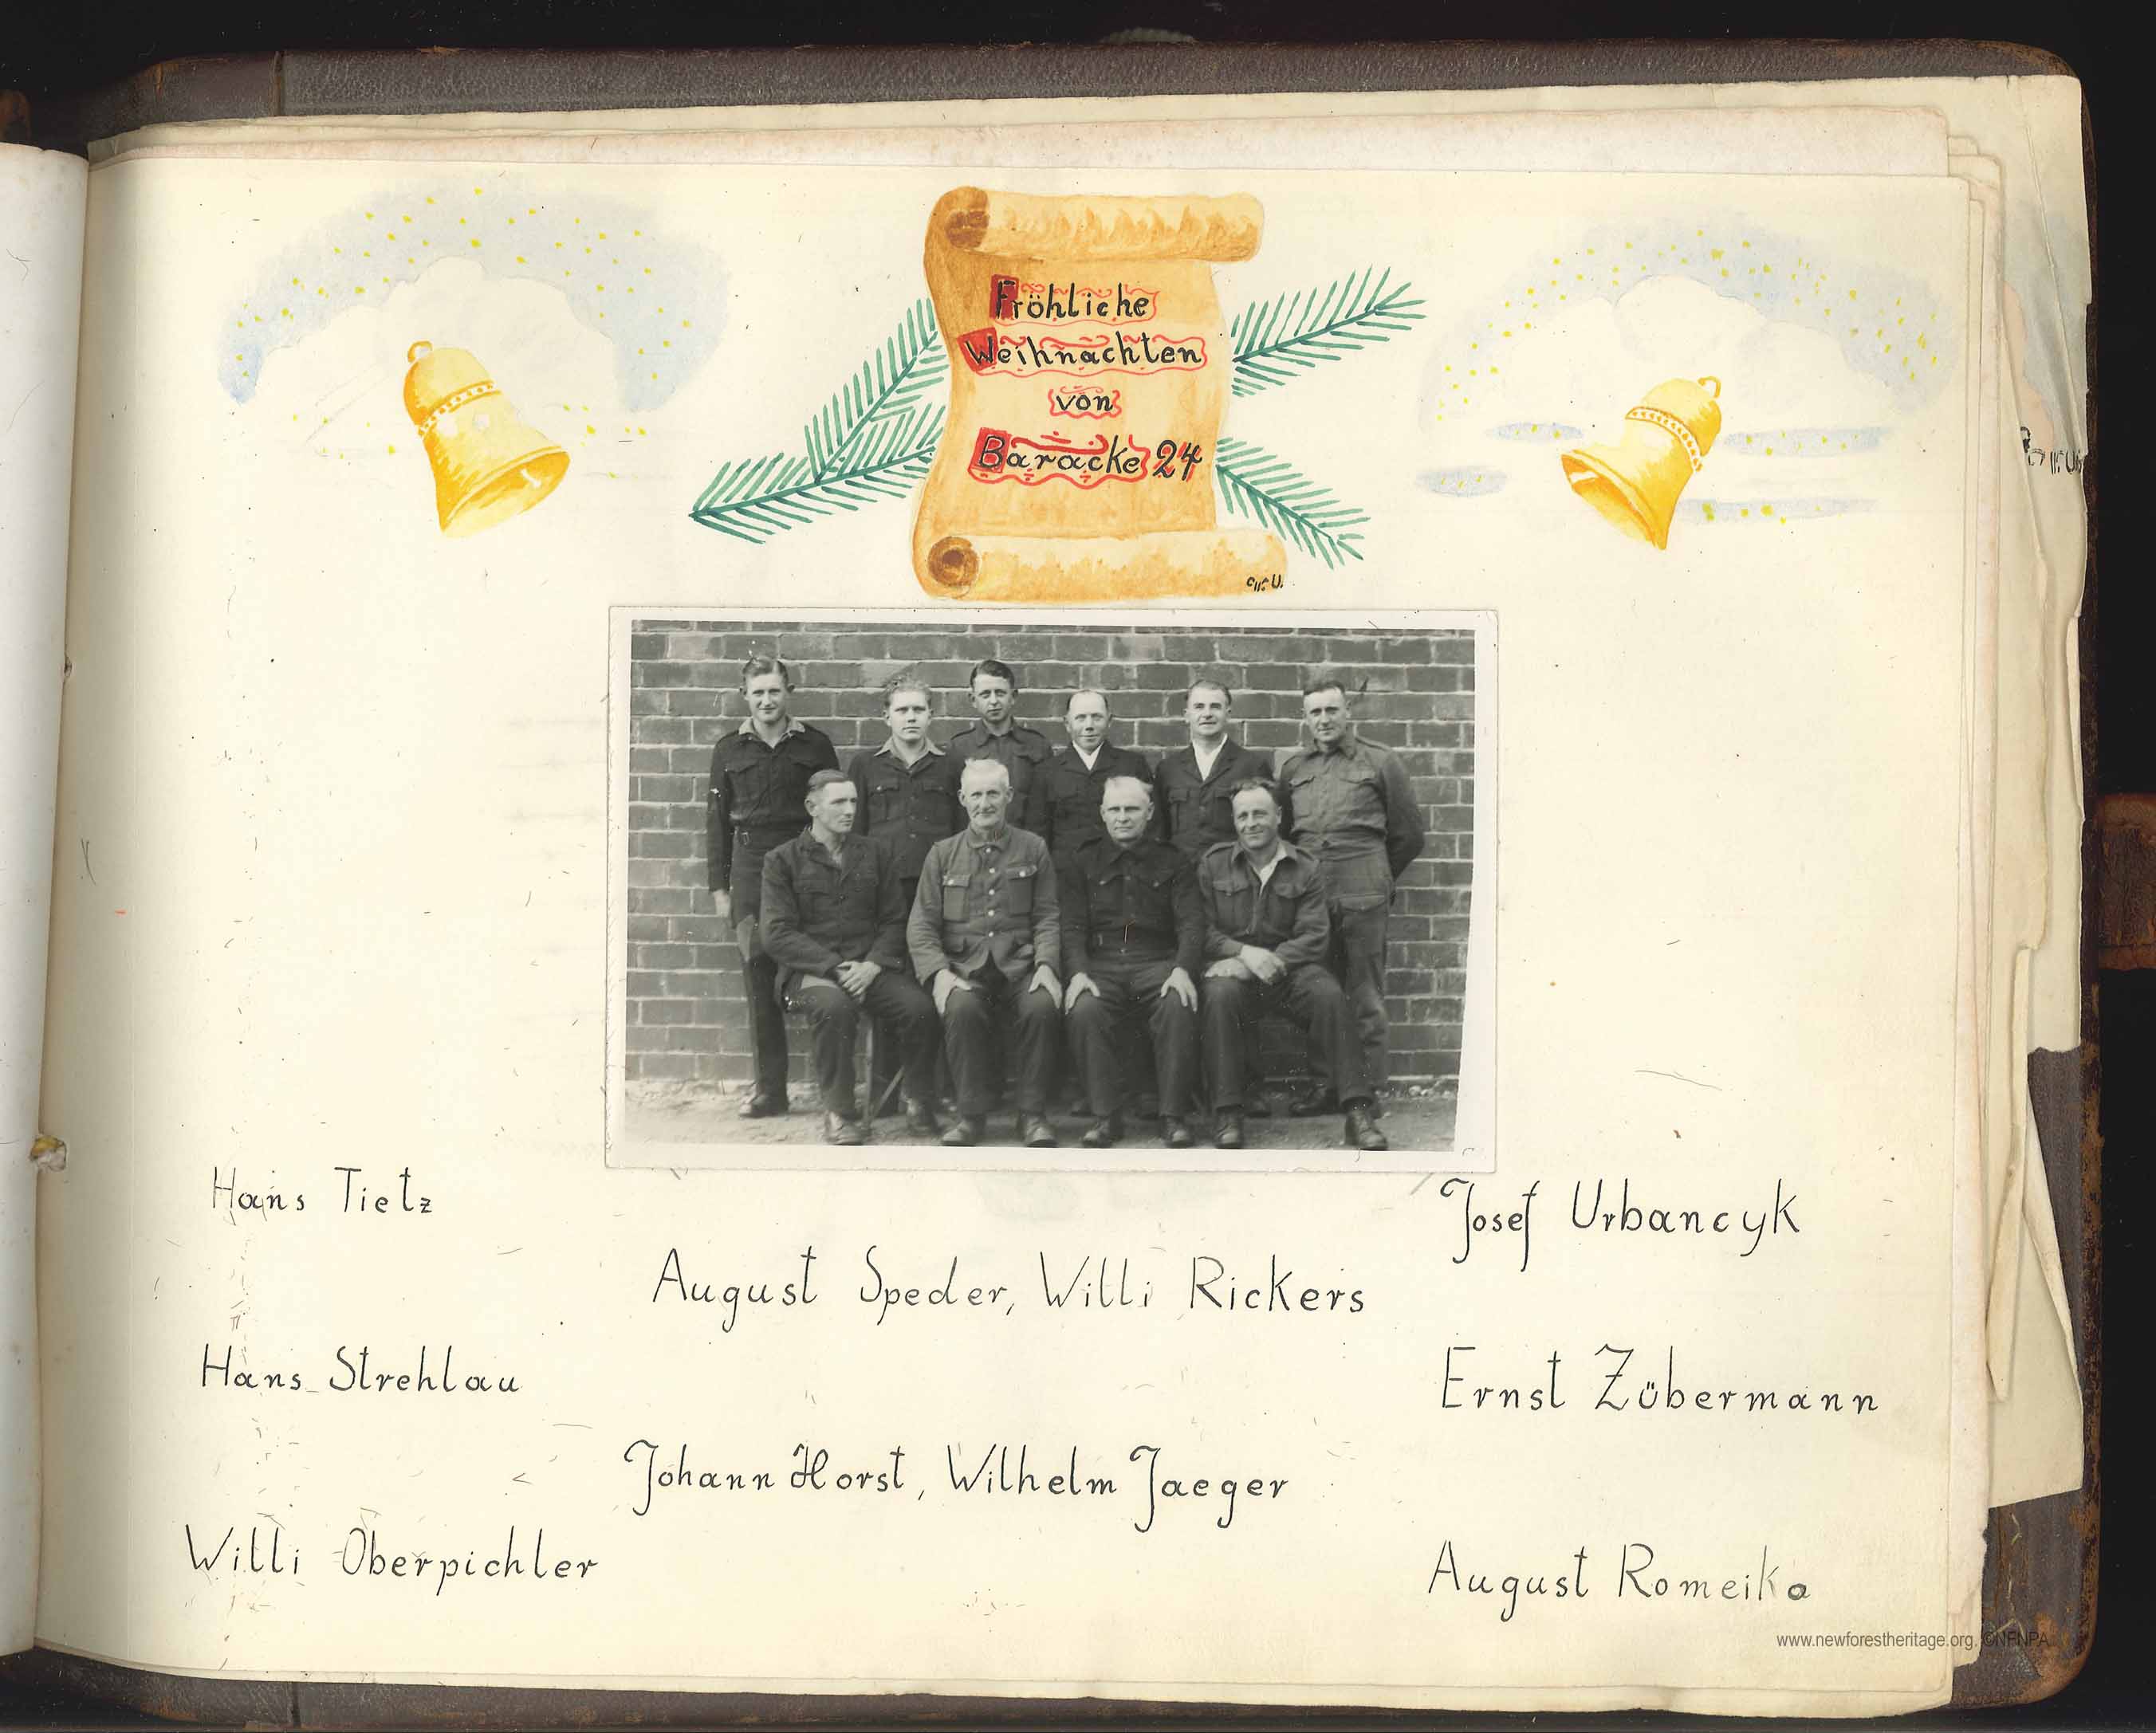 Fröhliche
Weihnachten
von
Baracke 24
Hans Tietz
Josef Urbancyk
August Speder, Willi Rickers
Hans Strehlau
Ernst Zübermann
Johann Horst, Wilhelm Jaeger
Willi Oberpichler
August Romeika
www.newforestheritage.org. ©NFNPA